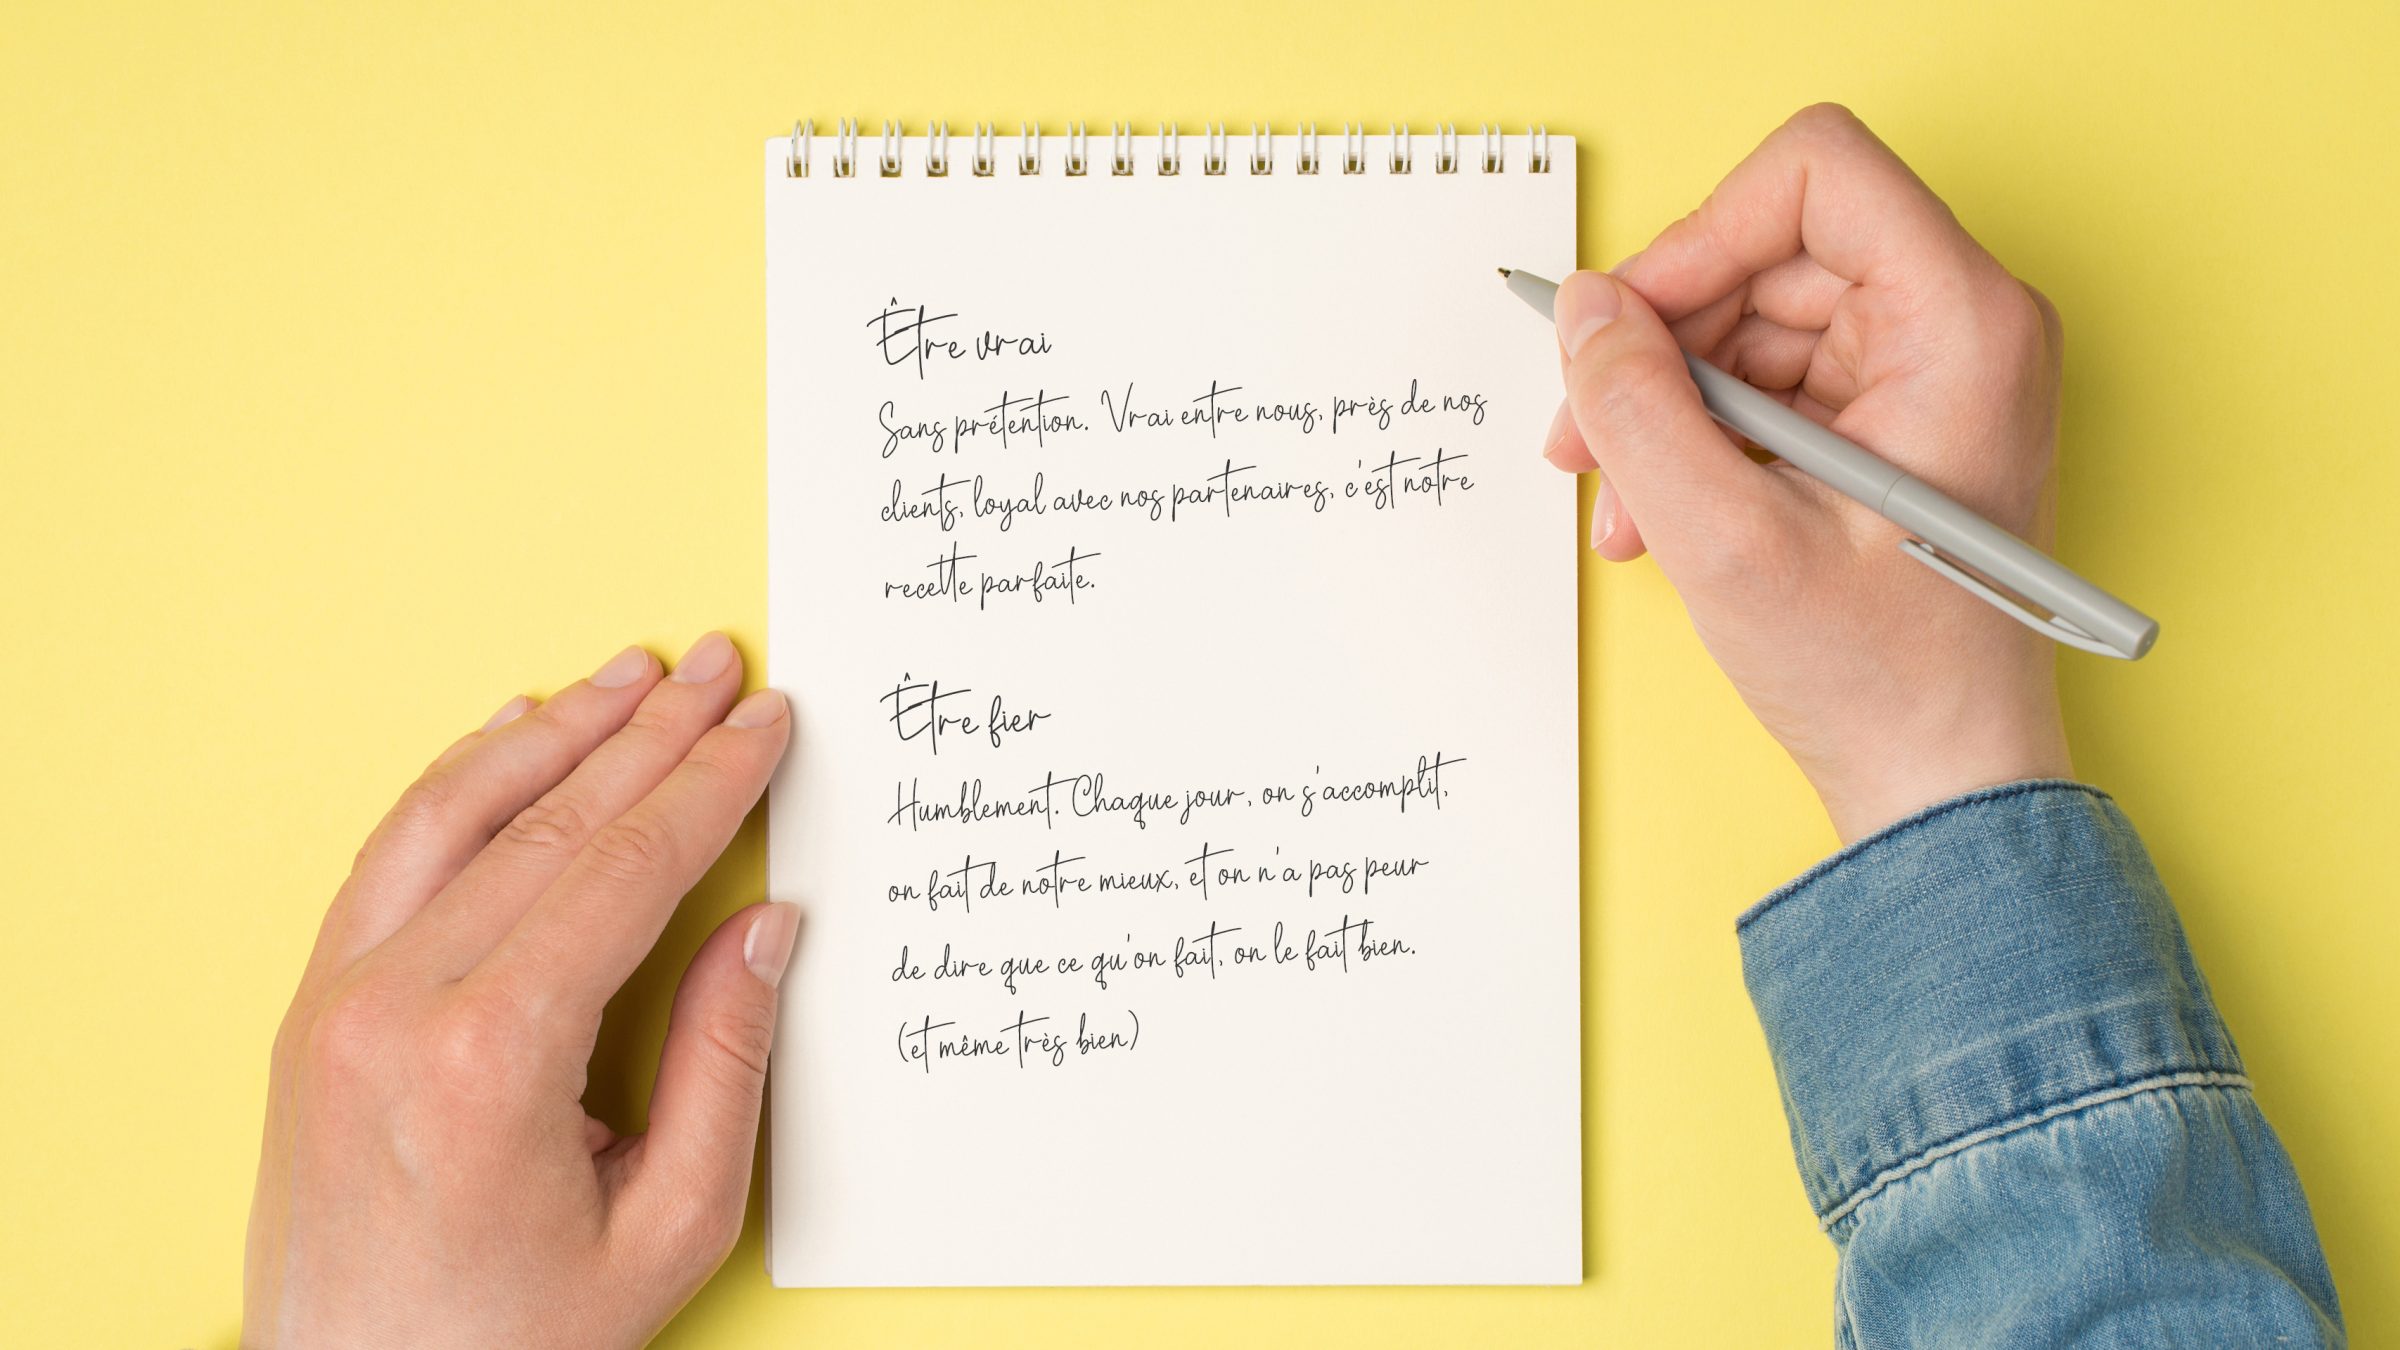 Être vrai
Sans prétention. Vrai entre nous, près de nos
clients, loyal avec nos partenaires, c'est notre
recette parfaite.
Être fier
Humblement. Chaque jour, on s'accomplit,
on fait de notre mieux, et on n'a pas peur
de dire que ce qu'on fait, on le fait bien.
(et même très bien)